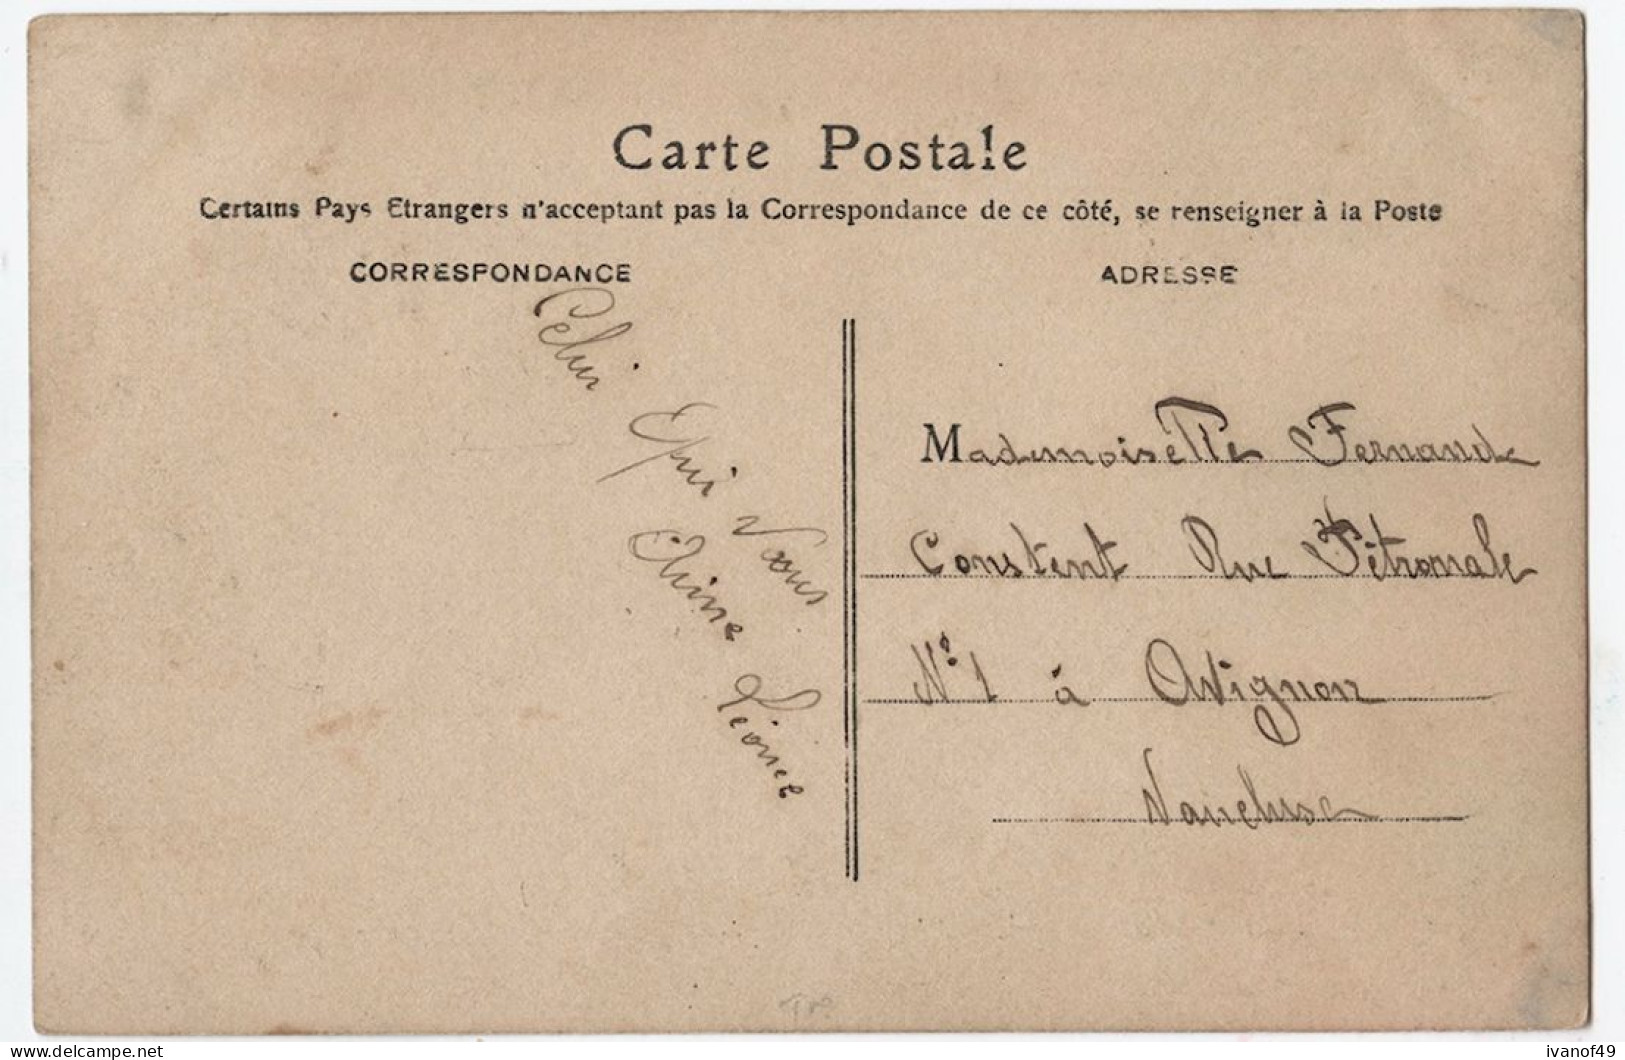 Carte Postale
Certains Pays Etrangers n'acceptant pas la Correspondance de ce côté, se renseigner à la Poste
CORRESPONDANCE
Celui
Qui Vous
Aime
Léonce
ADRESSE
Mademoiselle Fernande
Constent Rue Pétromale
N° 1 à Avignon
Vaucluse
https://www.delcampe.net
ivanof49